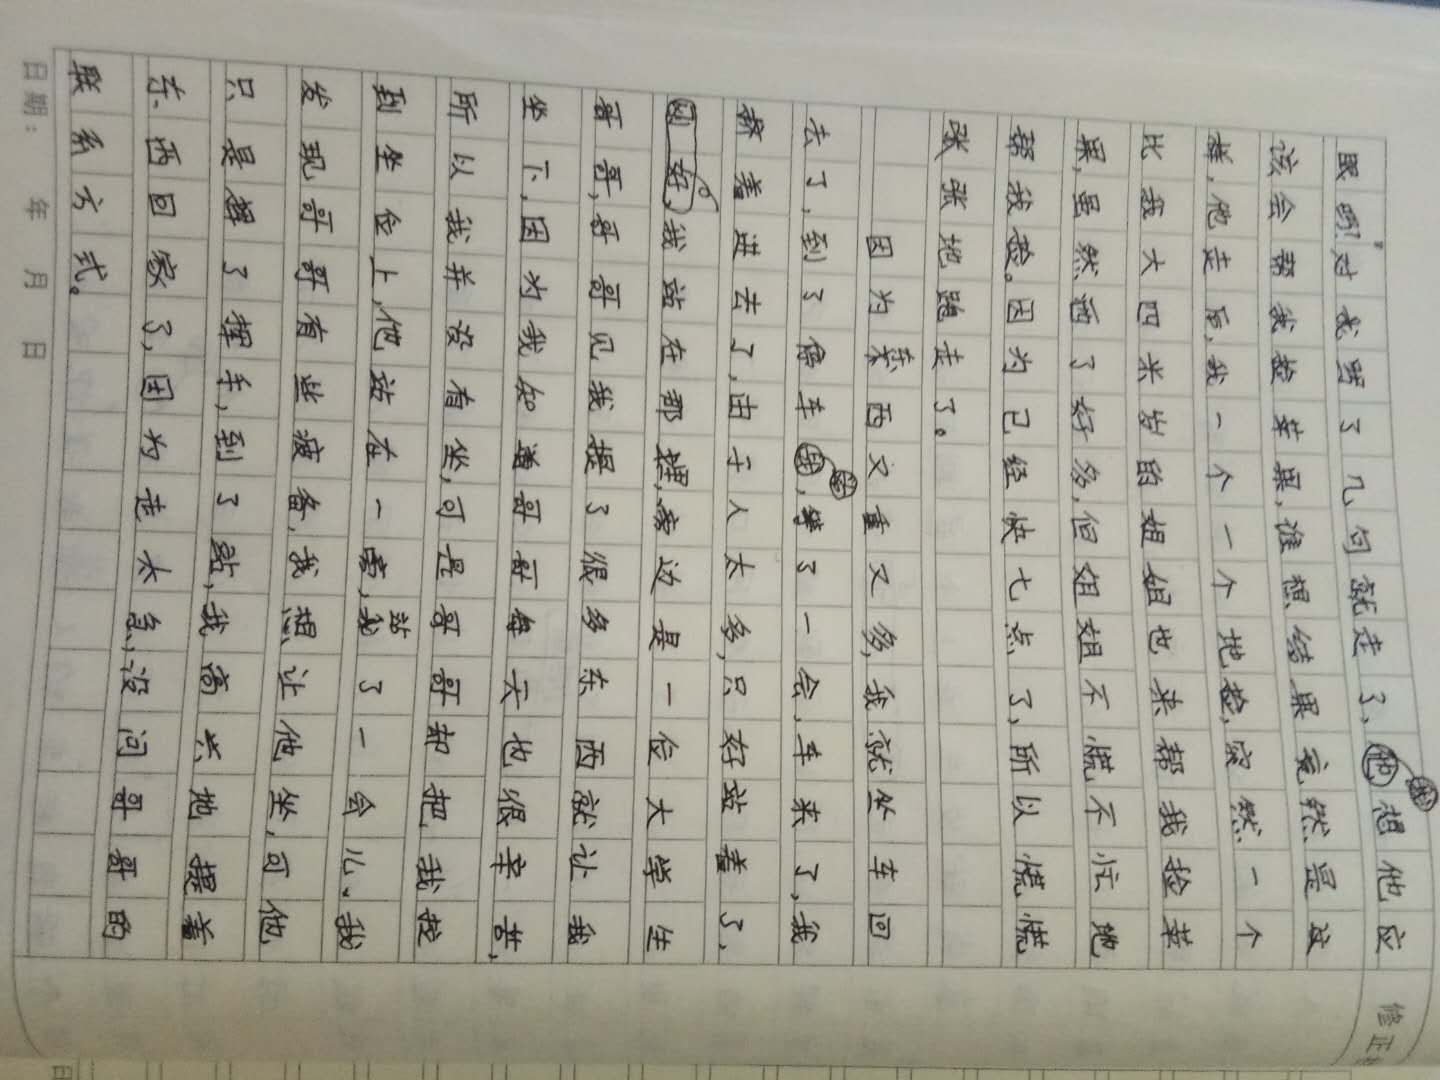 眼吗?"对我骂了几句就走了,我想他应
该会帮我捡苹果,谁想结果竟然是这
样,他走后,我一个一个地捡,突然一个
比我大四米岁的姐姐也来帮我捡苹
果,虽然洒了好多,但姐姐不慌不忙地
帮我捡。因为已经快七点了,所以慌慌
张张地跑走了。
因为东西又重又多,我就坐车回
去了,到了停车站,等了一会,车来了,我
挤着进去了,由于人太多,只好站着了,
刚好,我站在那里,旁边是一位大学生
哥哥,哥哥见我提了很多东西就让我
坐下,因为我知道哥哥每天也很辛苦,
所以我并没有坐,可是哥哥却把我拉
到坐位上,他站在一旁,站了一会儿。我
发现哥哥有些疲备,我想让他坐,可他
只是摆了摆手,到了站,我高兴地提着
东西回家了,因为走太急,没问哥哥的
联系方式。
日期: 年 月 日
修正